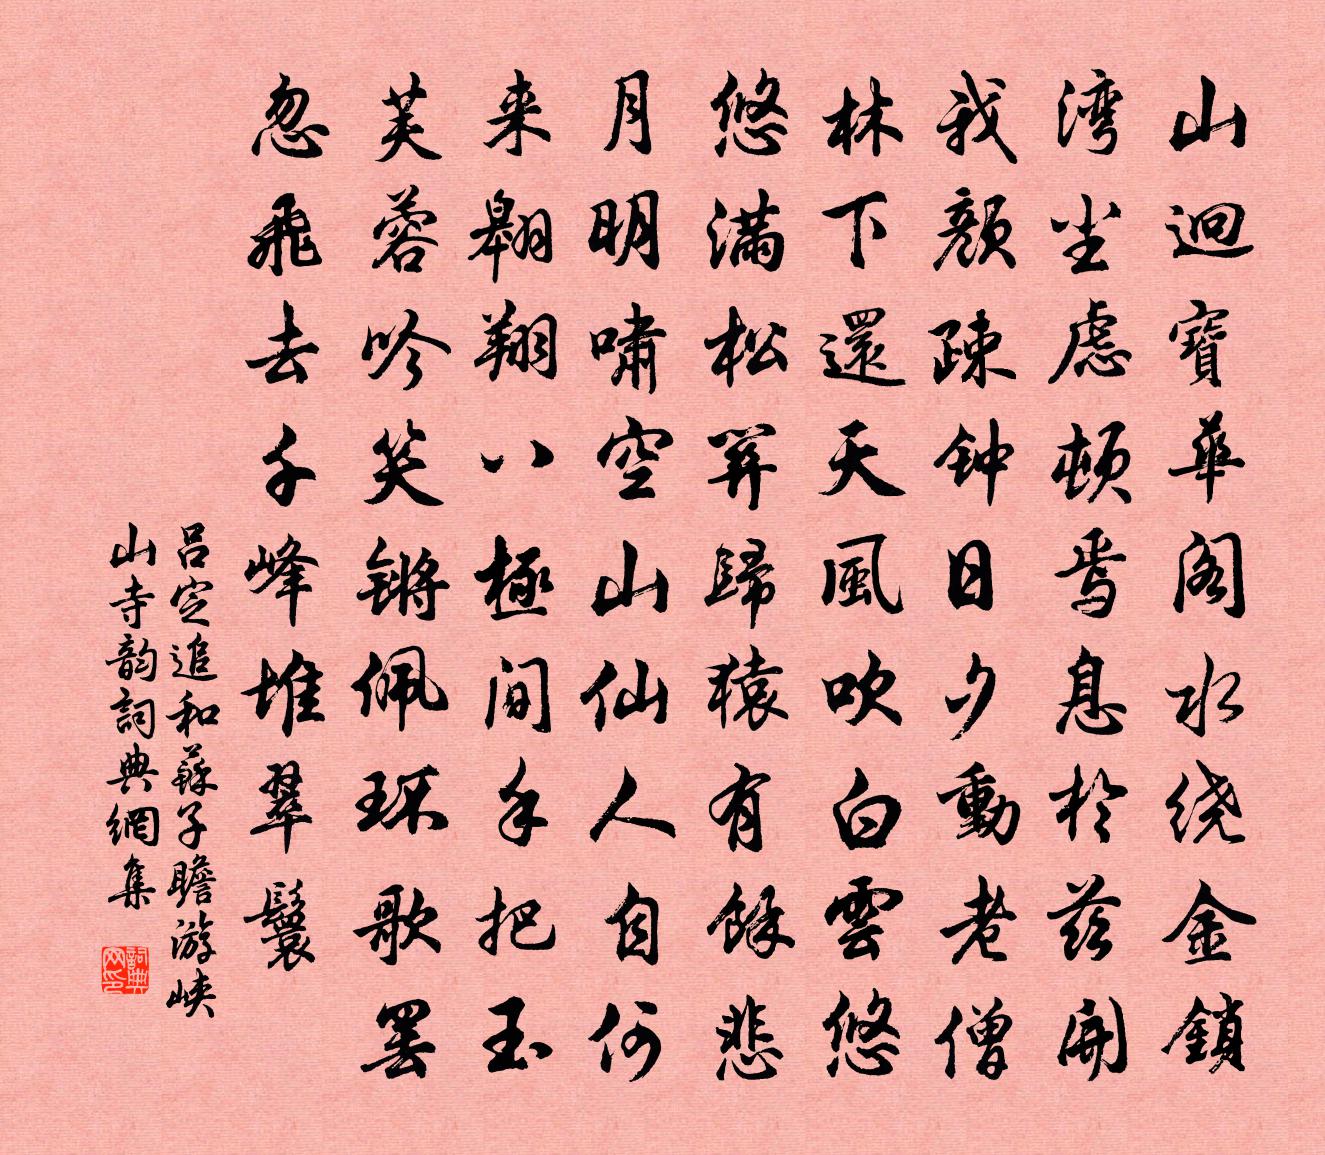 山迴寶華阁水绕金鎖
湾坐慮頓焉息於茲開
我颜疎钟日夕動老僧
林下還天風吹白雲悠
悠滿松關歸猿有餘悲
月明嘯空山仙人自何
来翱翔八極间手把玉
芙蓉吟笑锵佩环歌罢
忽飛去千峰堆翠鬟
吕定追和蘇子瞻游峡
山寺韵詞典網集
詞典
网印